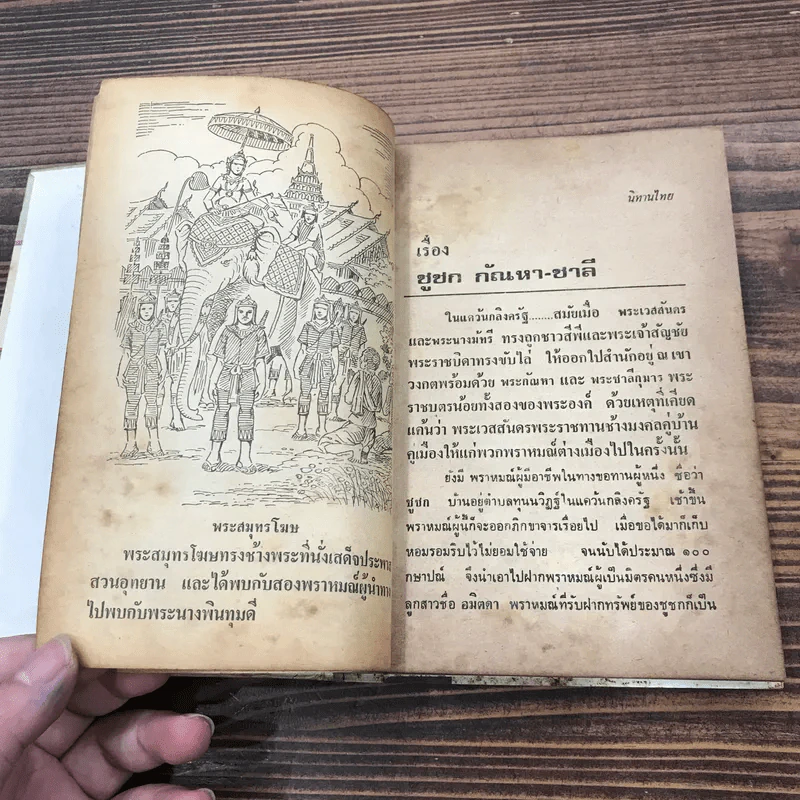 พระสมุทรโฆษ
พระสมุทรโฆษทรงช้างพระที่นั่งเสด็จประพาส
สวนอุทยาน และได้พบกับสองพราหมณ์ผู้นำทาง
ไปพบกับพระนางพินทุมดี
นิทานไทย
เรื่อง
ชูชก กัณหา-ชาลี
ในแคว้นกลิงครัฐ........สมัยเมื่อ พระเวสสันดร
และพระนางมัทรี ทรงถูกชาวสีพีและพระเจ้าสัญชัย
พระราชบิดาทรงขับไล่ ให้ออกไปสำนักอยู่ ณ เขา
วงกตพร้อมด้วย พระกัณหา และ พระชาลีกุมาร พระ
ราชบุตรน้อยทั้งสองของพระองค์ ด้วยเหตุที่เคียด
แค้นว่า พระเวสสันดรพระราชทานช้างมงคลคู่บ้าน
คู่เมืองให้แก่พวกพราหมณ์ต่างเมืองไปในครั้งนั้น
ยังมี พราหมณ์ผู้มีอาชีพในทางขอทานผู้หนึ่ง ชื่อว่า
ชูชก บ้านอยู่ตำบลทุนวิฏฐ์ในแคว้นกลิงครัฐ เช้าขึ้น
พราหมณ์ผู้นี้ก็จะออกภิกขาจารเรื่อยไป เมื่อขอได้มาก็เก็บ
หอมรอมริบไว้ไม่ยอมใช้จ่าย จนนับได้ประมาณ ๑๐๐
กษาปณ์ จึงนำเอาไปฝากพราหมณ์ผู้เป็นมิตรคนหนึ่งซึ่งมี
ลูกสาวชื่อ อมิตดา พราหมณ์ที่รับฝากทรัพย์ของชูชกก็เป็น